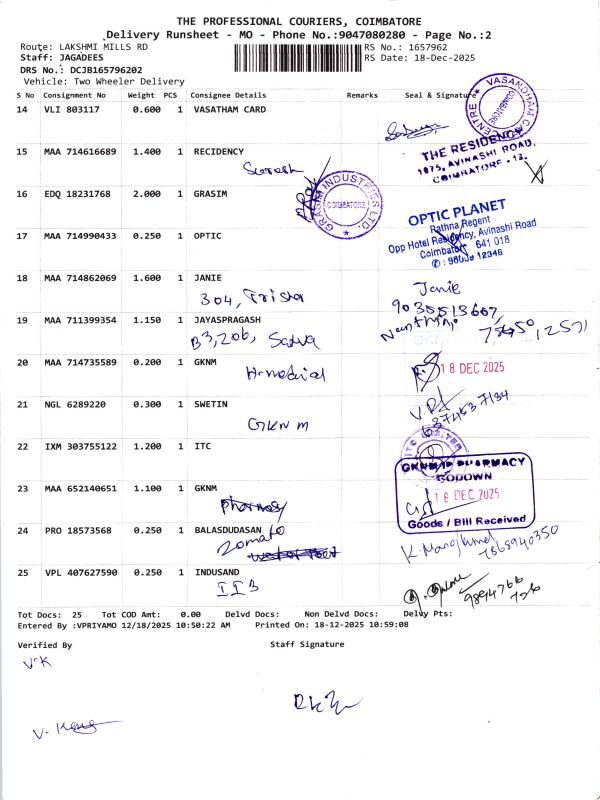 THE PROFESSIONAL COURIERS, COIMBATORE
Delivery Runsheet - MO - Phone No.:9047080280 - Page No.:2
Route: LAKSHMI MILLS RD
RS No.: 1657962
Staff: JAGADEES
RS Date: 18-Dec-2025
DRS No.: DCJB165796202
Vehicle: Two Wheeler Delivery
S No Consignment No Weight PCS Consignee Details Remarks Seal & Signature
14 VLI 803117 0.600 1 VASATHAM CARD
VASANDHAM CENTRE COIMBATORE
15 MAA 714616689 1.400 1 RECIDENCY
Suresh
THE RESIDENCY
1075, AVINASHI ROAD,
COIMBATORE - 12.
16 EDQ 18231768 2.000 1 GRASIM
GRASIM INDUSTRIES LTD.
COIMBATORE
17 MAA 714990433 0.250 1 OPTIC
OPTIC PLANET
Rathna Regent
Opp Hotel Residency, Avinashi Road
Coimbatore 641 018
18 MAA 714862069 1.600 1 JANIE
304, Trista
Janie
9035513667,
19 MAA 711399354 1.150 1 JAYASPRAGASH
B3, 206,
20 MAA 714735589 0.200 1 GKNM
H-medical
18 DEC 2025
21 NGL 6289220 0.300 1 SWETIN
GKNM
22 IXM 303755122 1.200 1 ITC
ITC LIMITED
23 MAA 652140651 1.100 1 GKNM
Pharmacy
GKNM IP PHARMACY
GODOWN
18 DEC 2025
Goods / Bill Received
24 PRO 18573568 0.250 1 BALASDUDASAN
Zomato
7868940350
25 VPL 407627590 0.250 1 INDUSAND
Tot Docs: 25 Tot COD Amt: 0.00 Delvd Docs: Non Delvd Docs: Delvy Pts:
Entered By :VPRIYAMO 12/18/2025 10:50:22 AM Printed On: 18-12-2025 10:59:08
Verified By
Staff Signature